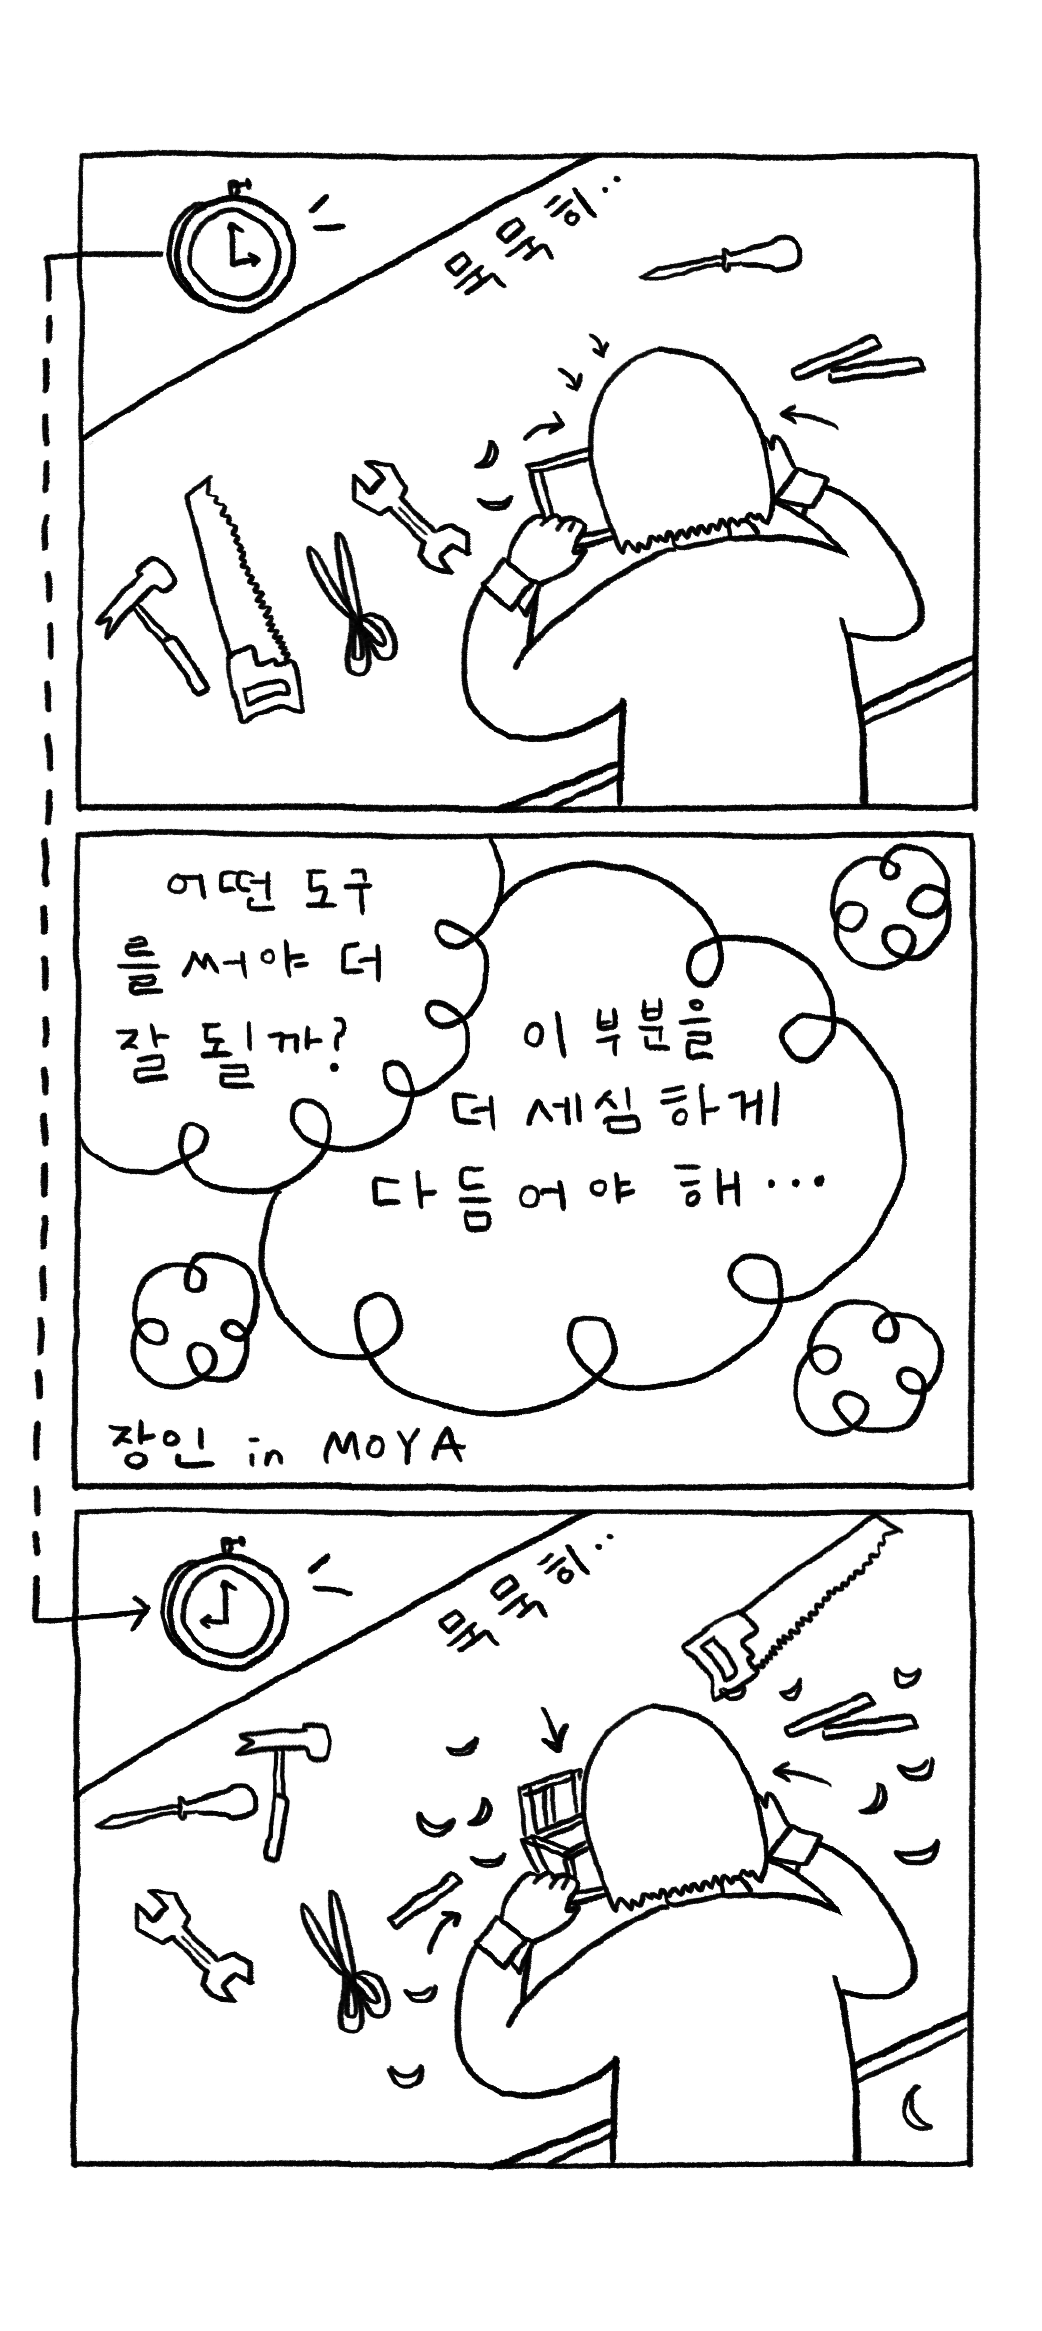 묵묵히..
어떤 도구
를 써야 더
잘 될까?
이 부분을
더 세심하게
다듬어야 해...
장인 in MOYA
묵묵히..